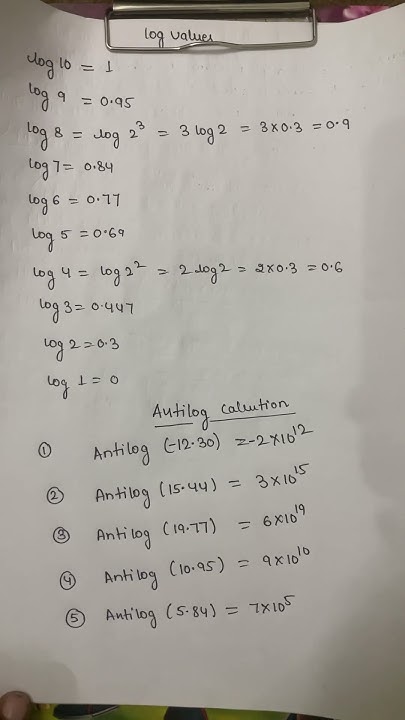 log values
log 10 = 1
log 9 = 0.95
log 8 = log 2³ = 3 log 2 = 3×0.3 = 0.9
log 7 = 0.84
log 6 = 0.77
log 5 = 0.69
log 4 = log 2² = 2 log 2 = 2×0.3 = 0.6
log 3 = 0.447
log 2 = 0.3
log 1 = 0
Antilog Calcution
① Antilog (-12.30) = -2×10¹²
② Antilog (15.44) = 3×10¹⁵
③ Antilog (19.77) = 6×10¹⁹
④ Antilog (10.95) = 9×10¹⁰
⑤ Antilog (5.84) = 7×10⁵